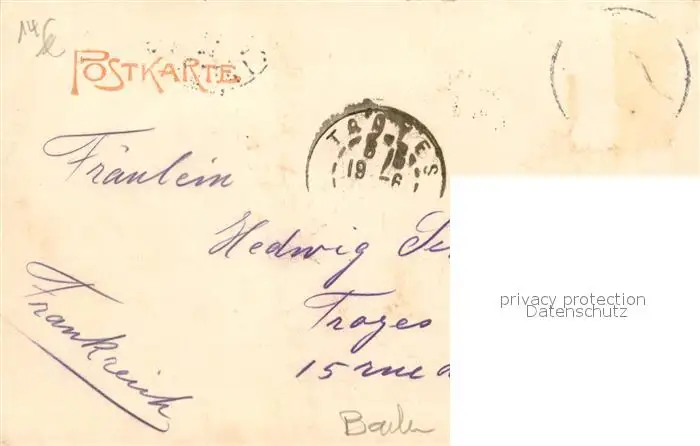 POSTKARTE
TROYES
Fräulein
Hedwig
Troyes
15 rue
Frankreich
privacy protection
Datenschutz